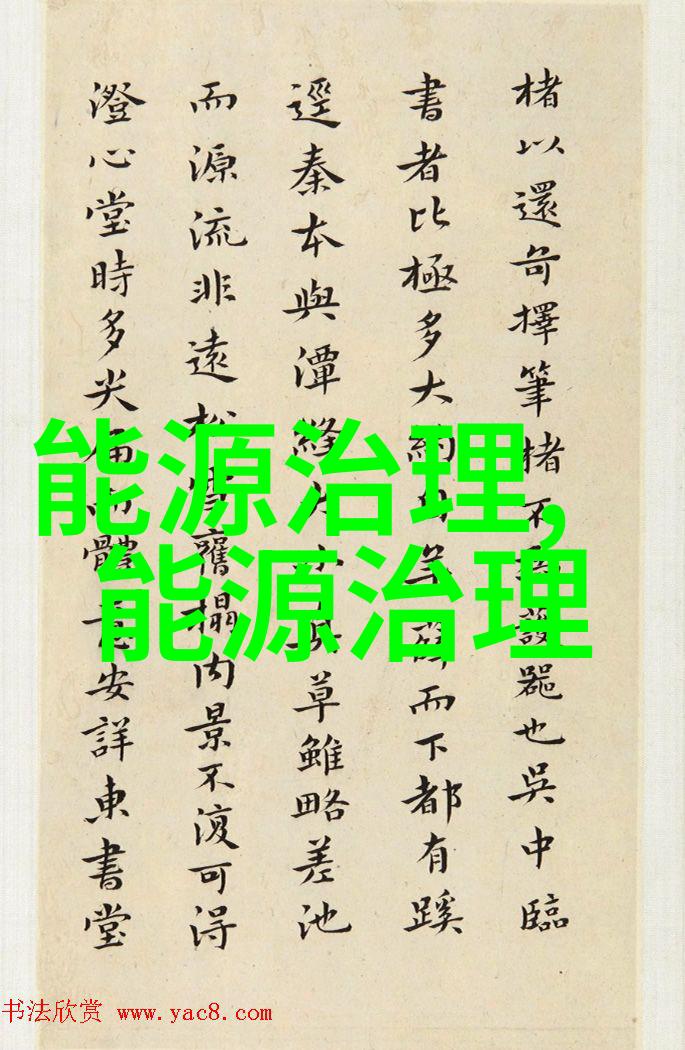 楮以還奇擇筆楮不器也吳中臨
書者比極多大約而下都有蹊
逕秦本與潭草雖略差池
而源流非遠松舊搨內景不復可得
澄心堂時多尖體安詳東書堂
能源治理,
能源治理
书法欣赏 www.yac8.com